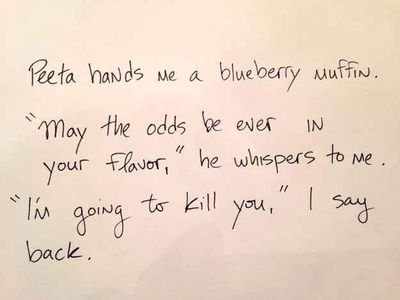 Peeta hands me a blueberry muffin.
"May the odds be ever in
your flavor," he whispers to me.
"I'm going to kill you," I say
back.